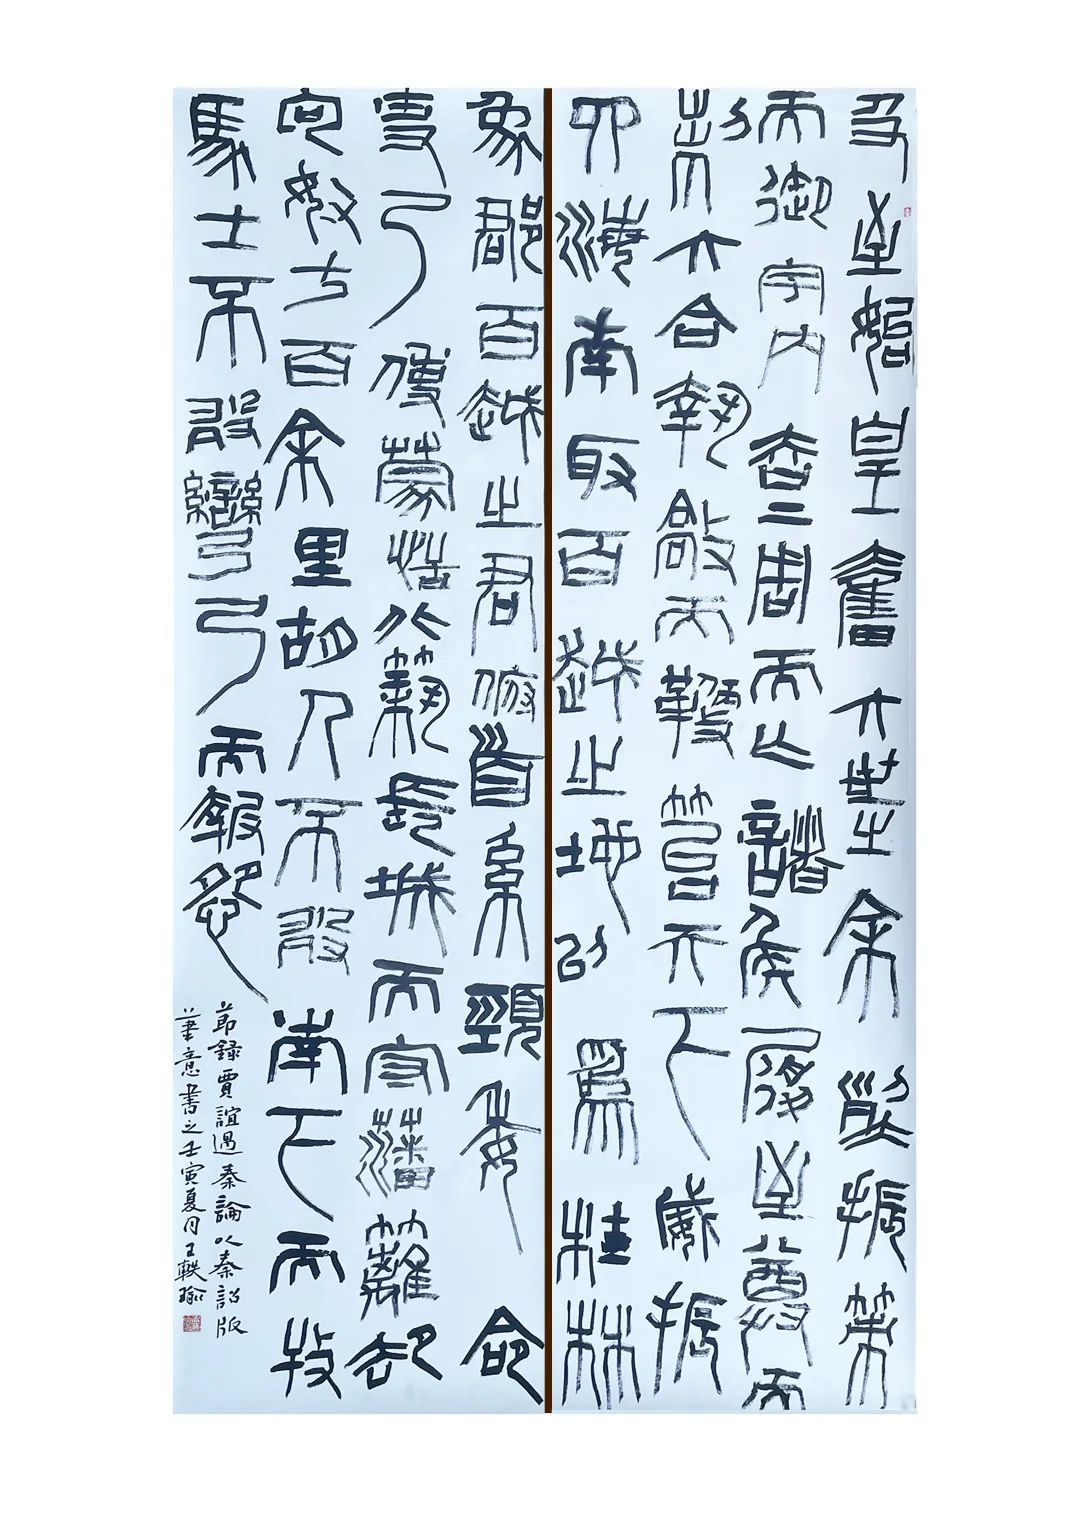 及至始皇奮六世之余烈振策
而御宇内吞二周而亡諸侯履至尊而
制六合執敲而鞭笞天下威振
四海南取百越之地以為桂林
象郡百越之君俯首系頸委命
吏乃使蒙恬北築長城而守藩籬却
匈奴七百余里胡人不敢南下而牧
馬士不敢彎弓而報怨
節錄賈誼過秦論以秦詔版
筆意書之壬寅夏月王軼瑜